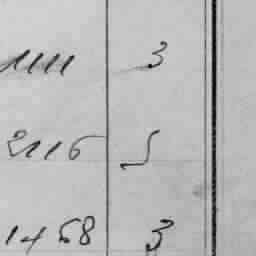 1111 3
2116 5
1468 3